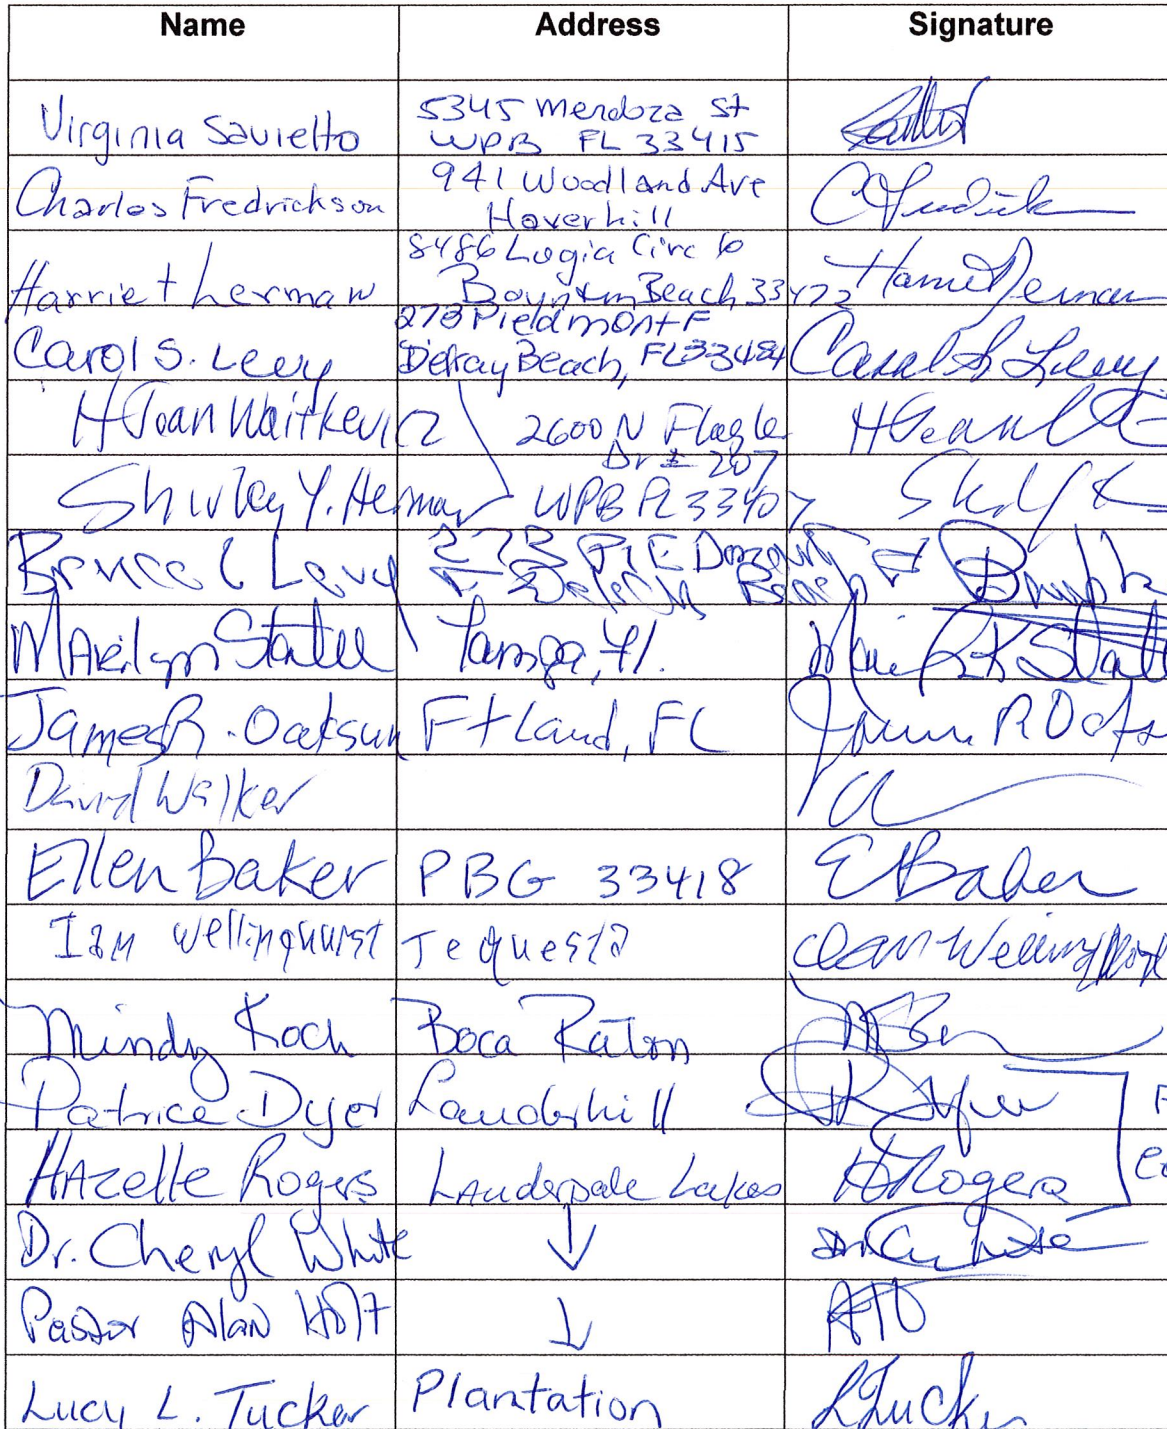 Name Address Signature
Virginia Savietto 5345 Mendoza St
WPB FL 33415
Charles Fredrickson 941 Woodland Ave
Haverhill
Harriet Lerman 8486 Logia Circle
Boynton Beach 33472 Harriet Lerman
Carol S. Levy 273 Piedmont F
Delray Beach, FL 33484 Carol S Levy
H Joan Waitkevicz 2600 N Flagler
Dr # 207
Shirley Y. Herman WPB FL 33407
Bruce C Levy 273 PIEDmont F
Delray Beach
Marilyn Tampa, Fl.
James R. Oaksun Ft Laud, FL
David Walker
Ellen Baker PBG 33418 E Baker
Ian Wellinghurst Tequesta
Mindy Koch Boca Raton
Patrice Dyer Lauderhill
HAzelle Rogers LAuderdale Lakes H Rogers
Dr. Cheryl White ↓
Pastor Alan Holt ↓
Lucy L. Tucker Plantation L Tucker